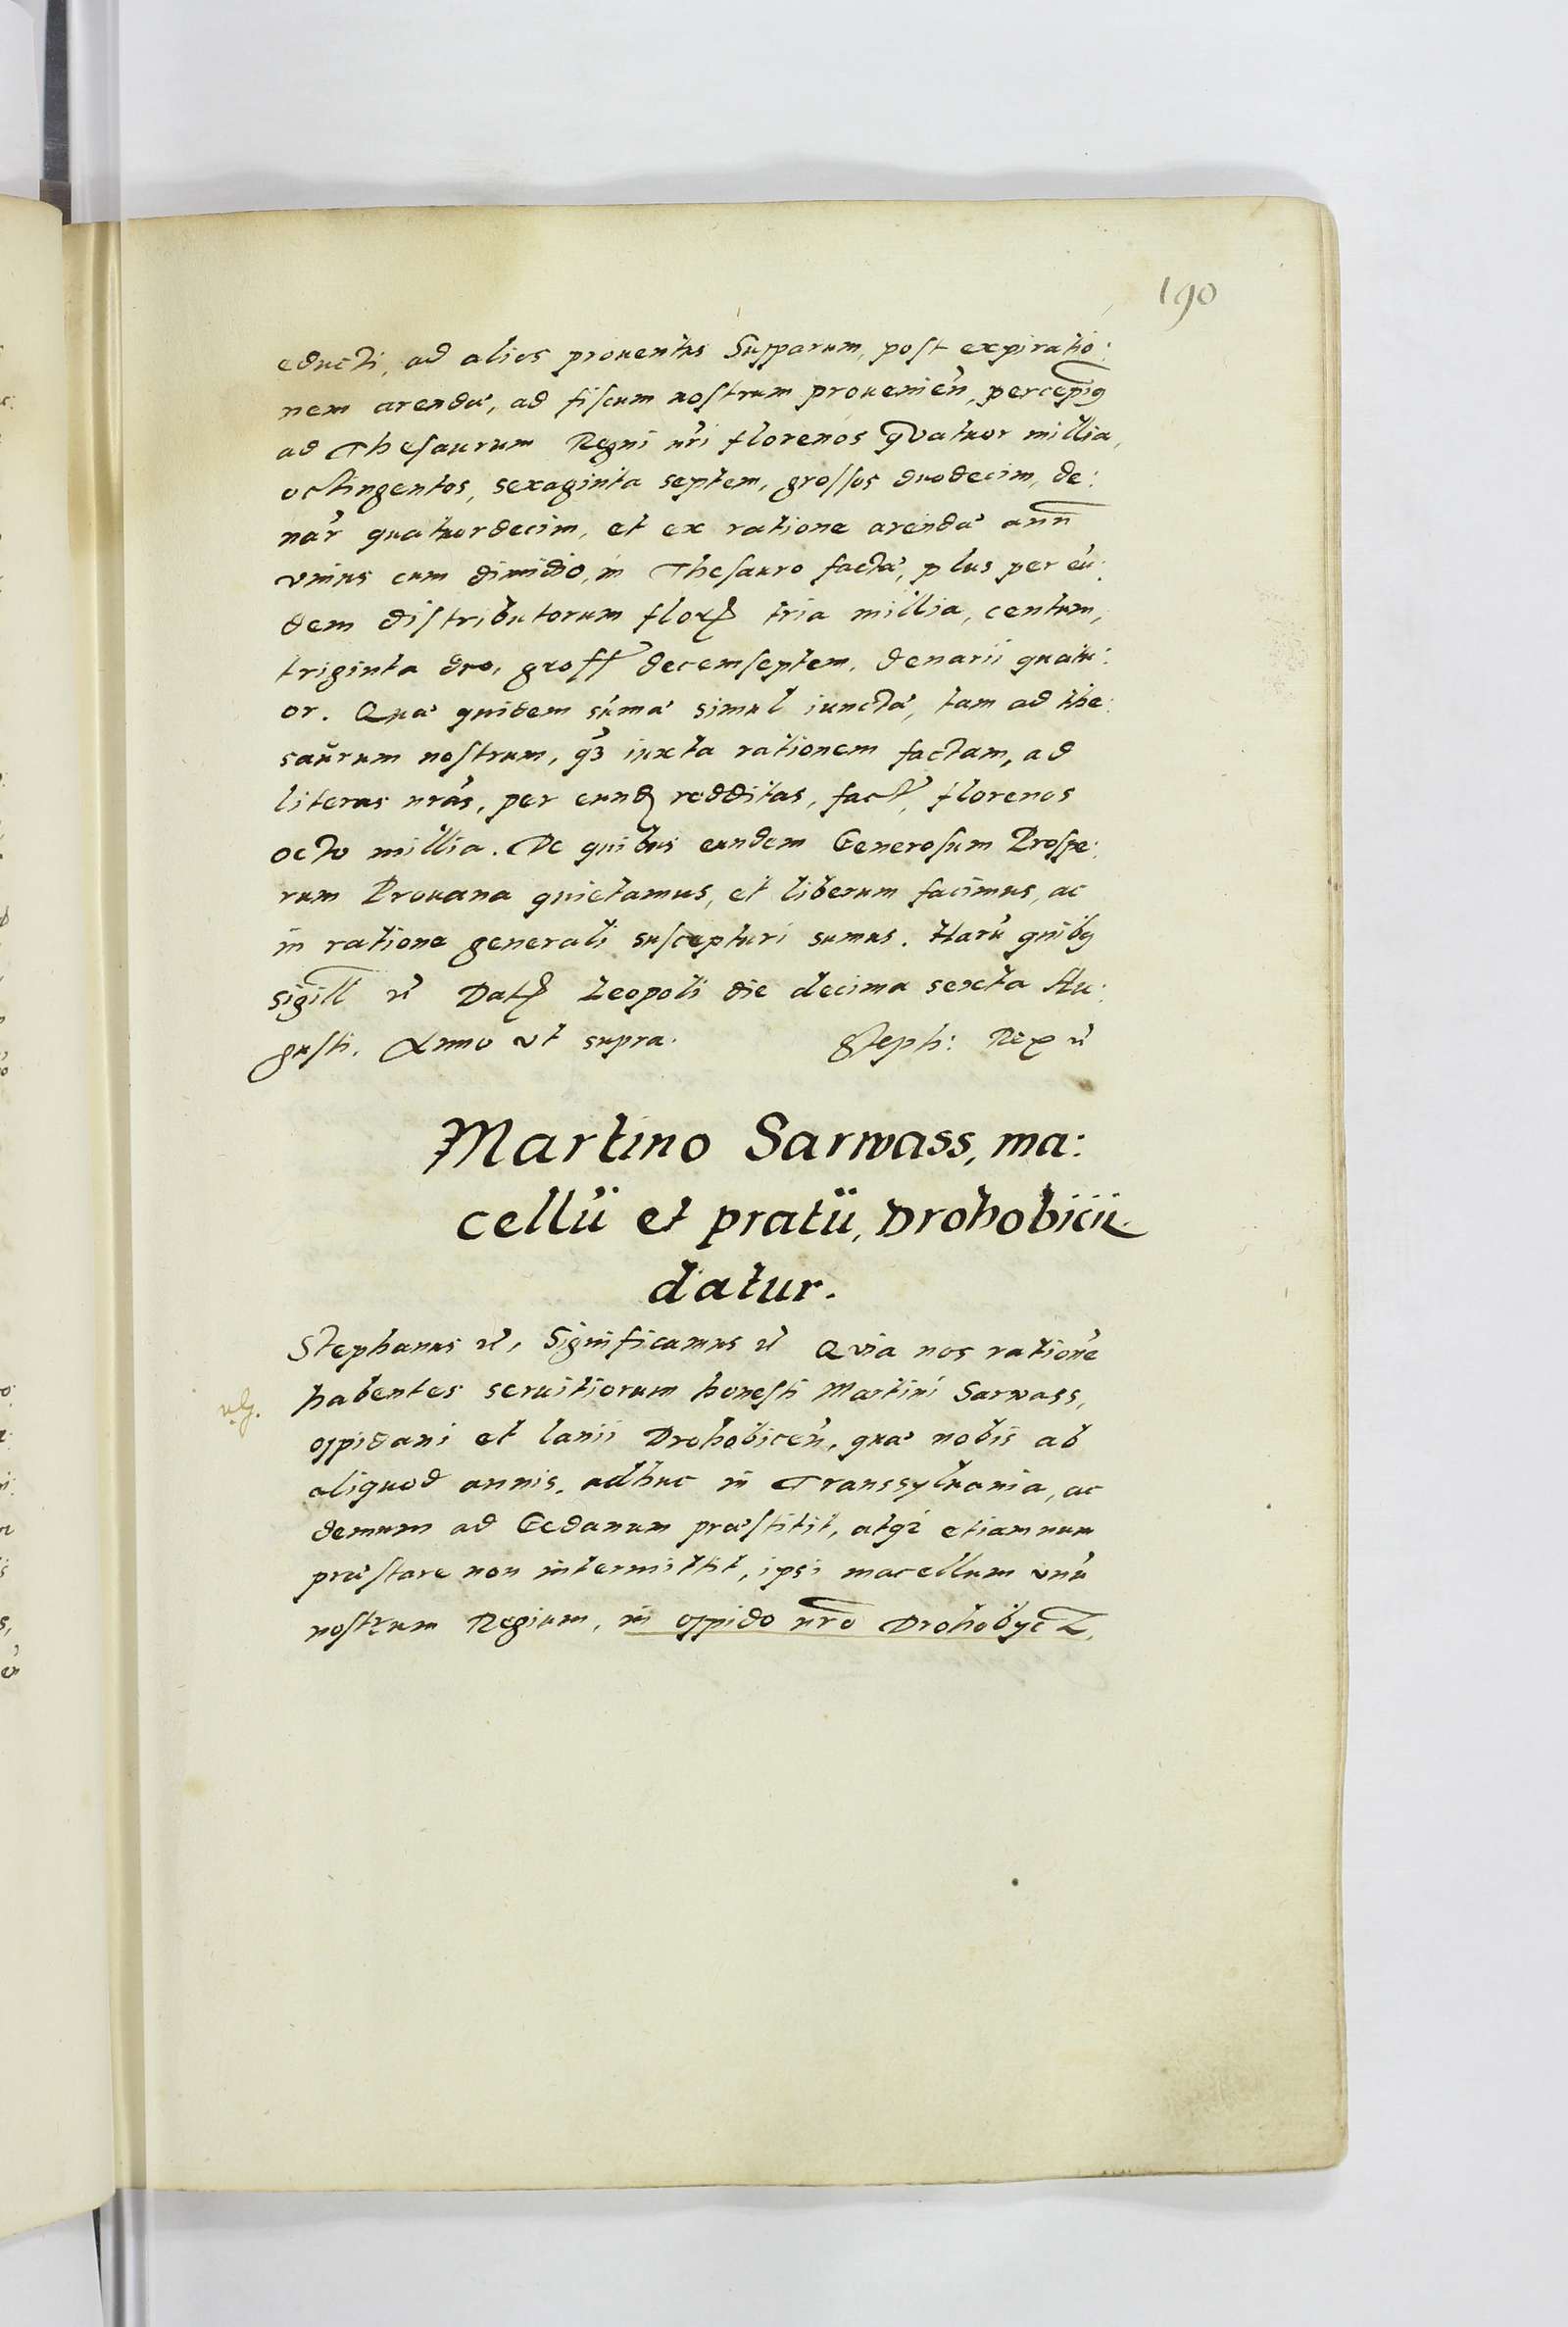 190
educti, ad alios prouentus Supparum, post expiratio:
nem arendæ, ad fiscum nostrum prouenieñ, percepi9
ad Thesaurum Regni nr̃i florenos qVatuor millia,
octingentos, sexaginta septem, grossos duodecim, de:
nar̃ quatuordecim, et ex ratione arendæ anñ
vnius cum dimidio, in Thesauro factæ, plus per eũ:
dem distributorum flor tria millia, centum,
triginta duo, gross decemseptem, denarii quatu:
or. Quæ quidem sũmæ simul iunctæ, tam ad the:
saurum nostrum, q̃3 iuxta rationem factam, ad
literas nrãs, per eund redditas, fact, florenos
octo millia. De quibus eundem Generosum Prospe:
rum Prouana quietamus, et liberum facimus, ac
in rationa generali suscepturi sumus. Harũ quib9
sigill Dat Leopoli die decima sexta Au:
gusti. Anno vt supra. Steph: Rex
Martino Sarwass, ma:
cellũ et pratũ, Drohobicii
datur.
Stephanus, Significamus Qvia nos rationẽ
habentes seruitiorum honesti Martini Sarwass,
oppidani et lanii Drohobiceñ, quæ nobis ab
aliquod annis, adhuc in Transsyluania, ac
demum ad Gedanum præstitit, atq3 etiamnum
præstare non intermittit, ipsi macellum vnũ
nostrum Regium, in oppido nrõ Drohobycz,